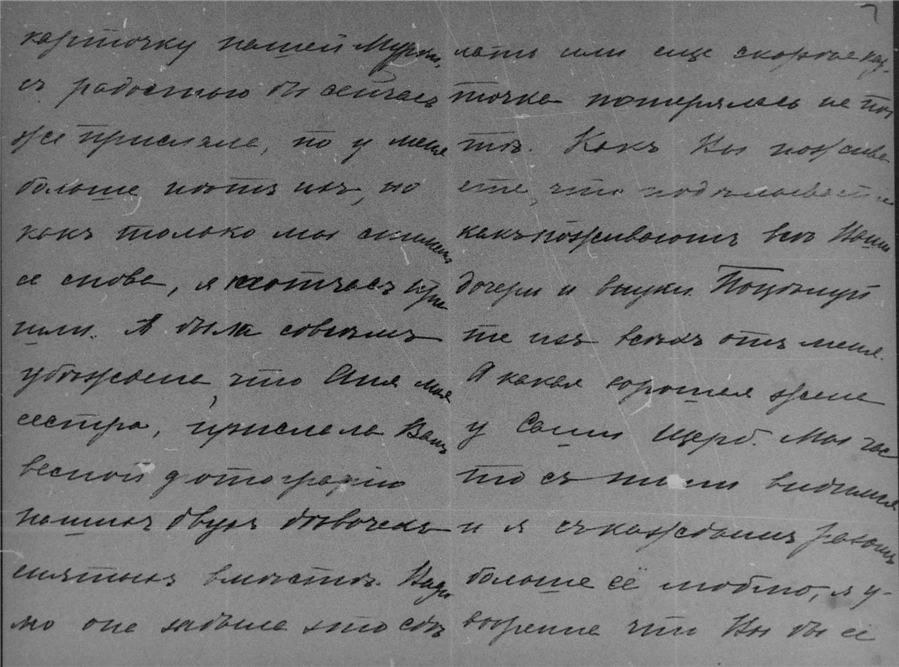 карточку нашей Мурки,
съ радостью бы сейчасъ
же прислала, но у меня
больше нѣтъ ихъ, но
какъ только мы снимемъ
ее снова, я тотчасъ при
шлю. Я была совсѣмъ
убѣждена, что Аня моя
сестра, прислала Вамъ
весной фотографію
нашихъ двухъ дѣвочекъ
снятыхъ вмѣстѣ. Видно
она забыла это сдѣ
лать или еще скорѣе кар
точка потерялась на поч
тѣ. Какъ Вы пожива
ете, что подѣлываете
какъ поживаютъ всѣ Ваши
дочери и внуки. Поцѣлуй
те ихъ всѣхъ отъ меня.
А какая хорошая жена
у Саши Щерб. Мы час
то съ ними видимся
и я съ каждымъ разомъ
больше её люблю, я у-
вѣрена что Вы бы её